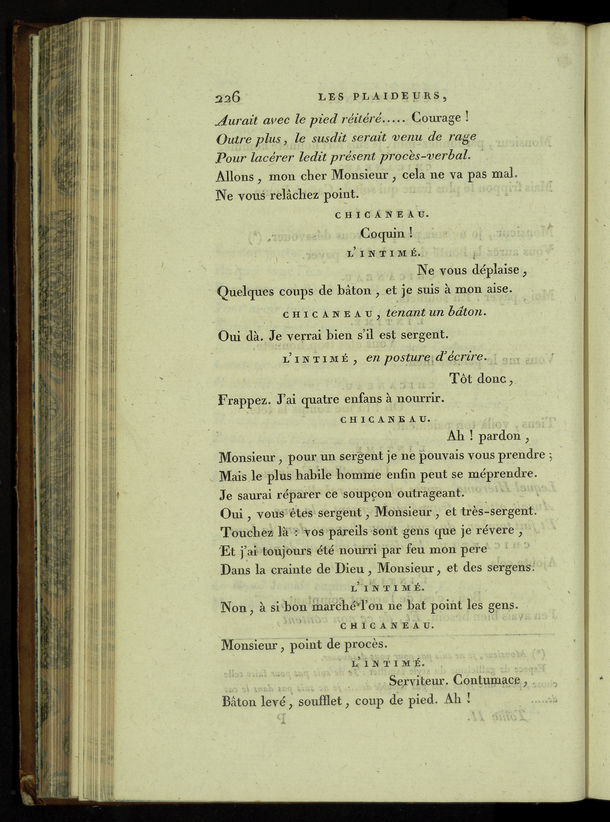 226 LES PLAIDEURS,
Aurait avec le pied réitéré..... Courage !
Outre plus, le susdit serait venu de rage
Pour lacérer ledit présent procès-verbal.
Allons, mon cher Monsieur, cela ne va pas mal.
Ne vous relâchez point.
CHICANEAU.
Coquin !
L'INTIMÉ.
Ne vous déplaise,
Quelques coups de bâton, et je suis à mon aise.
CHICANEAU, tenant un bâton.
Oui dà. Je verrai bien s'il est sergent.
L'INTIMÉ, en posture d'écrire.
Tôt donc,
Frappez. J'ai quatre enfans à nourrir.
CHICANEAU.
Ah ! pardon,
Monsieur, pour un sergent je ne pouvais vous prendre ;
Mais le plus habile homme enfin peut se méprendre.
Je saurai réparer ce soupçon outrageant.
Oui, vous êtes sergent, Monsieur, et très-sergent.
Touchez là : vos pareils sont gens que je révere,
Et j'ai toujours été nourri par feu mon pere
Dans la crainte de Dieu, Monsieur, et des sergens.
L'INTIMÉ.
Non, à si bon marché l'on ne bat point les gens.
CHICANEAU.
Monsieur, point de procès.
L'INTIMÉ.
Serviteur. Contumace,
Bâton levé, soufflet, coup de pied. Ah !